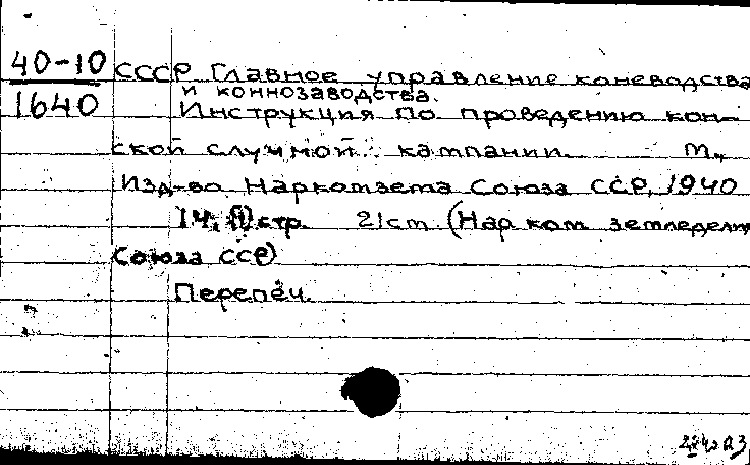 40-10
1640
СССР. Главное управление коневодства
и коннозаводства.
Инструкция по проведению кон-
ской случной кампании. М.,
Изд-во Наркомзема Союза ССР, 1940
14, [1] стр. 21 см. (Нар. ком. земледелия
Союза ССР)
Перепеч.